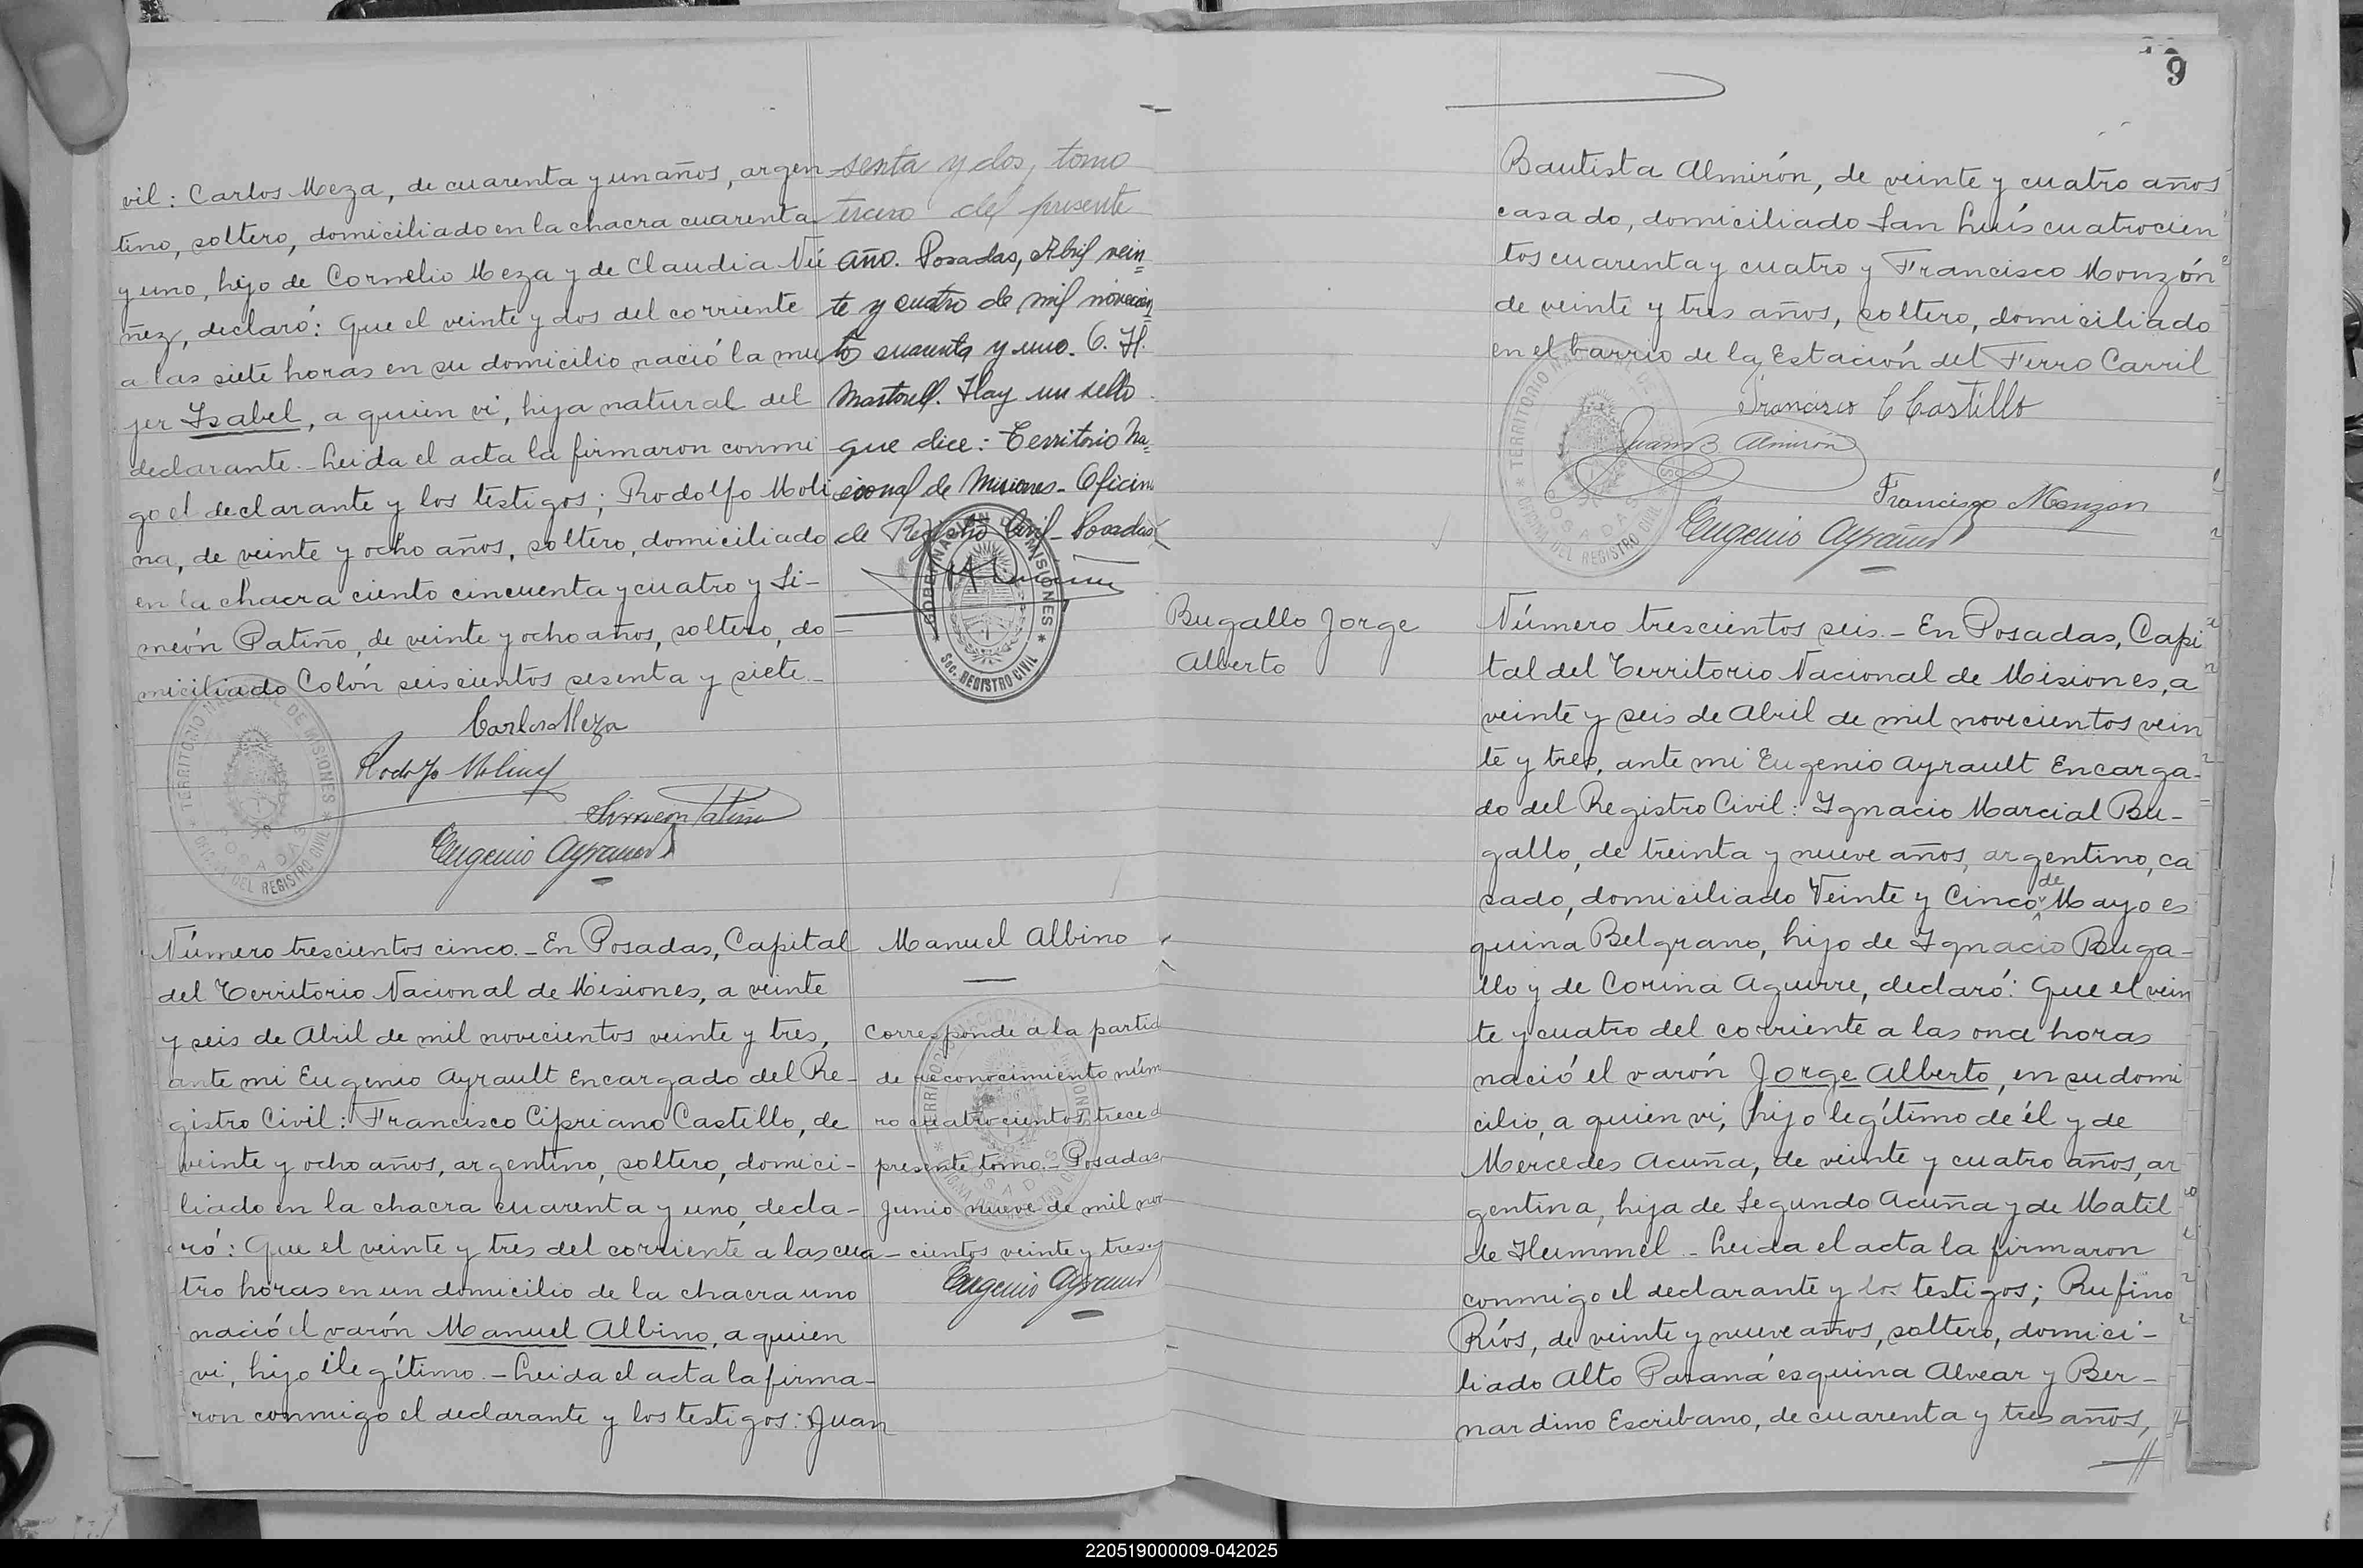 vil: Carlos Meza, de cuarenta y un años, argen
tino, soltero, domiciliado en la chacra cuarenta
y uno, hijo de Cornelio Meza y de Claudia Nú
ñez, declaró: Que el veinte y dos del corriente
a las siete horas en su domicilio nació la mu
jer Isabel, a quien vi, hija natural del
declarante.- Leida el acta la firmaron conmi
go el declarante y los testigos; Rodolfo Moli
na, de veinte y ocho años, soltero, domiciliado
en la chacra ciento cincuenta y cuatro y Si-
meón Patiño, de veinte y ocho años, soltero, do
miciliado Colón seiscientos sesenta y siete.-
Carlos Meza
Rodolfo Molina
Simeon Patiño
Eugenio Ayrault
TERRITORIO NACIONAL DE MISIONES
POSADAS
OFICINA DEL REGISTRO CIVIL
senta y dos, tomo
tercero del presente
año. Posadas, Abril vein=
te y cuatro de mil novecien
tos cuarenta y uno. C. H.
Martorell. Hay un sello
que dice: Territorio Na=
cional de Misiones- Oficina
de Registro Civil- Posadas
GOBERNACION DE MISIONES
SEC. REGISTRO CIVIL
Número trescientos cinco.- En Posadas, Capital
del Territorio Nacional de Misiones, a veinte
y seis de Abril de mil novecientos veinte y tres,
ante mi Eugenio Ayrault Encargado del Re-
gistro Civil: Francisco Cipriano Castillo, de
veinte y ocho años, argentino, soltero, domici-
liado en la chacra cuarenta y uno, decla-
ró: Que el veinte y tres del corriente a las cua-
tro horas en un domicilio de la chacra uno
nació el varón Manuel Albino, a quien
vi, hijo ilegítimo.- Leida el acta la firma-
ron conmigo el declarante y los testigos: Juan
Manuel Albino
Corresponde a la partid
de reconocimiento núm
ro cuatrocientos trece d
presente tomo.- Posadas,
Junio nueve de mil nov
cientos veinte y tres
Eugenio Ayrault
9
Bautista Almirón, de veinte y cuatro años
casado, domiciliado San Luís cuatrocien
tos cuarenta y cuatro y Francisco Monzón
de veinte y tres años, soltero, domiciliado
en el barrio de la Estación del Ferro Carril
Francisco C Castillo
Juan B. Almirón
Francisco Monzon
Eugenio Ayrault
TERRITORIO NACIONAL DE MISIONES
POSADAS
OFICINA DEL REGISTRO CIVIL
Bugallo Jorge
Alberto
Número trescientos seis.- En Posadas, Capi
tal del Territorio Nacional de Misiones, a
veinte y seis de Abril de mil novecientos vein
te y tres, ante mi Eugenio Ayrault Encarga-
do del Registro Civil: Ignacio Marcial Bu-
gallo, de treinta y nueve años, argentino, ca
sado, domiciliado Veinte y Cinco de Mayo es
quina Belgrano, hijo de Ignacio Buga-
llo y de Corina Aguirre, declaró: Que el vein
te y cuatro del corriente a las once horas
nació el varón Jorge Alberto, en su domi
cilio, a quien vi, hijo legítimo de él y de
Mercedes Acuña, de veinte y cuatro años, ar
gentina, hija de Segundo Acuña y de Matil
de Hummel.- Leida el acta la firmaron
conmigo el declarante y los testigos; Rufino
Ríos, de veinte y nueve años, soltero, domici-
liado Alto Paraná esquina Alvear y Ber-
nardino Escribano, de cuarenta y tres años,
220519000009-042025